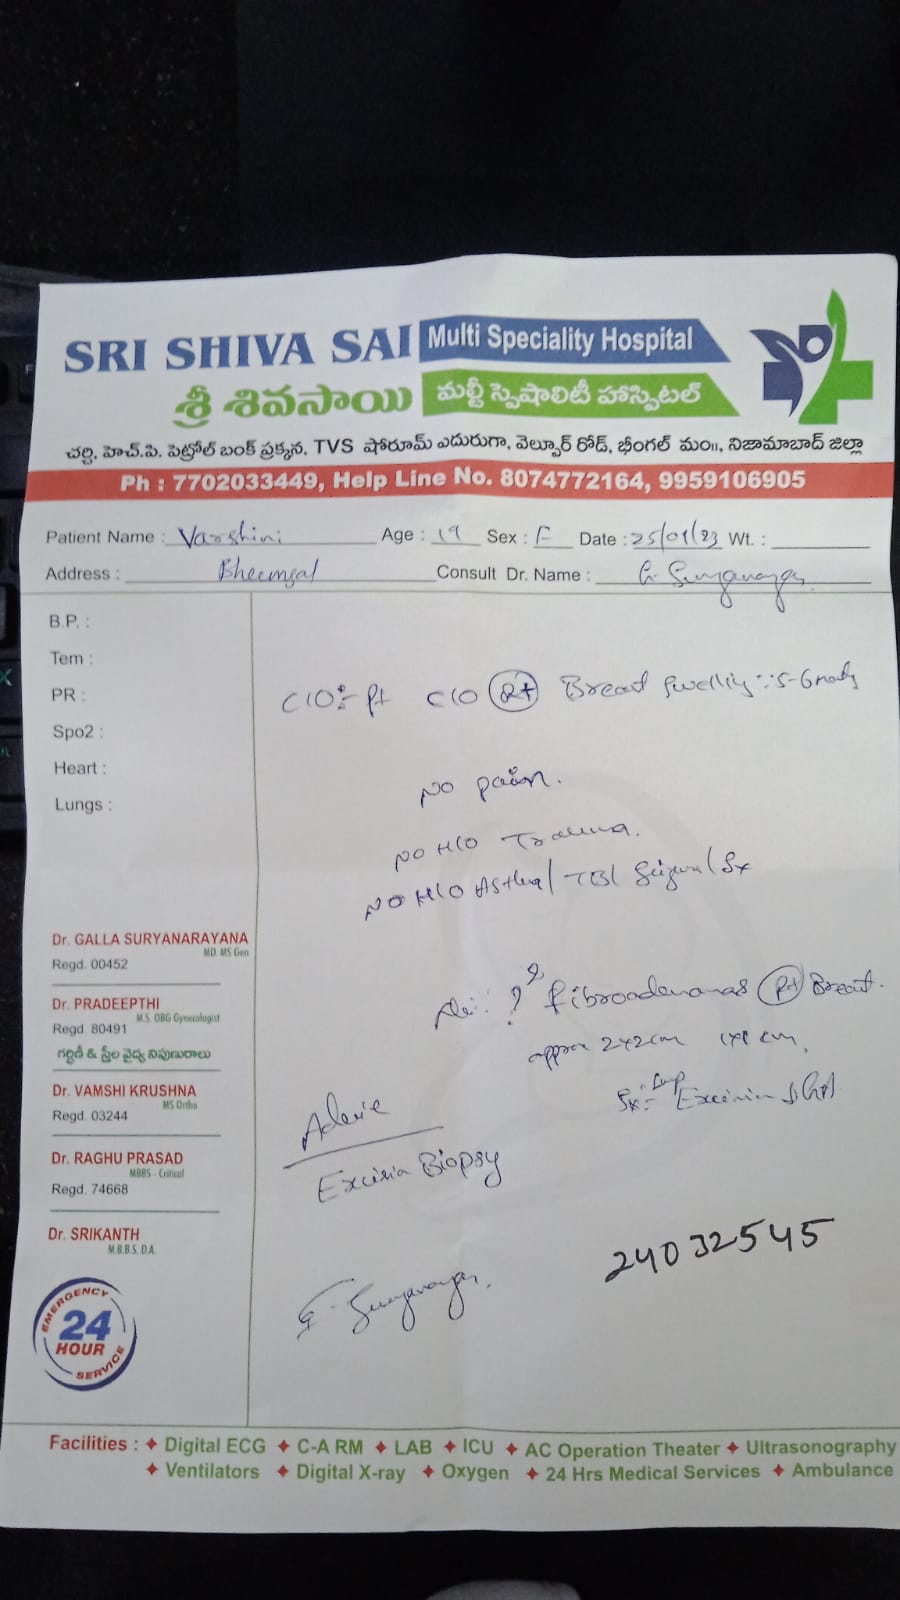 SRI SHIVA SAI Multi Speciality Hospital
శ్రీ శివసాయి మల్టీ స్పెషాలిటీ హాస్పిటల్
చర్చి, హెచ్.పి. పెట్రోల్ బంక్ ప్రక్కన, TVS షోరూమ్ ఎదురుగా, వెల్పూర్ రోడ్, భీంగల్ మం॥, నిజామాబాద్ జిల్లా
Ph : 7702033449, Help Line No. 8074772164, 9959106905
Patient Name : Varshini Age : 19 Sex : F Date : 25/01/23 Wt. :
Address : Bheemgal Consult Dr. Name : G. Suryanarayana
B.P. :
Tem :
PR :
Spo2 :
Heart :
Lungs :
C/O:- Pt C/O Rt Breast swelling
No pain.
No H/O Trauma.
No H/O Asthma/ TB/
? Fibroadenomas Rt Breast.
approx 2x2cm 1x1 cm,
Excision
Advice
Excision Biopsy
G. Suryanarayana
24032545
Dr. GALLA SURYANARAYANA
MD. MS Gen
Regd. 00452
Dr. PRADEEPTHI
M.S. OBG Gynecologist
Regd. 80491
గర్భిణీ & స్త్రీల వైద్య నిపుణురాలు
Dr. VAMSHI KRUSHNA
MS Ortho
Regd. 03244
Dr. RAGHU PRASAD
MBBS - Critical
Regd. 74668
Dr. SRIKANTH
M.B.B.S. D.A.
EMERGENCY
24
HOUR
SERVICE
Facilities : ✦ Digital ECG ✦ C-A RM ✦ LAB ✦ ICU ✦ AC Operation Theater ✦ Ultrasonography
✦ Ventilators ✦ Digital X-ray ✦ Oxygen ✦ 24 Hrs Medical Services ✦ Ambulance